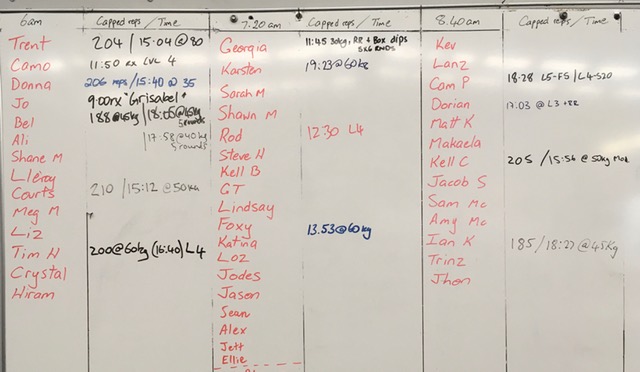 6am Capped reps / Time
Trent 204 / 15:04 @ 80
Camo 11:50 RX LVL 4
Donna 206 reps / 15:40 @ 35
Jo 9:00rx "Grisabel"
Bel 188@45kg / 18:05@15kg 5 rounds
Ali 17:58@40kg
5 rounds
Shane M
Lleroy
Courts 210 / 15:12 @ 50kg
Meg M
Liz
Tim H 200@60kg (16:40) L4
Crystal
Hiram
7:20am Capped reps / Time
Georgia 11:45 30kg, RR + Box dips
5x6 RNDS
Karsten 19:23@60kg
Sarah M
Shawn M
Rod 12:30 L4
Steve H
Kell B
GT
Lindsay
Foxy 13:53@60kg
Katina
Loz
Jodes
Jason
Sean
Alex
Jett
Ellie
8:40am Capped reps / Time
Kev
Lanz
Cam P 18:28 L5-FS / L4-S20
Dorian 17:03 @ L3 +RR
Matt K
Makaela
Kell C 205 / 15:56 @ 50kg
Jacob S
Sam Mc
Amy Mc
Ian K 185 / 18:27 @ 45kg
Trinz
Jhon